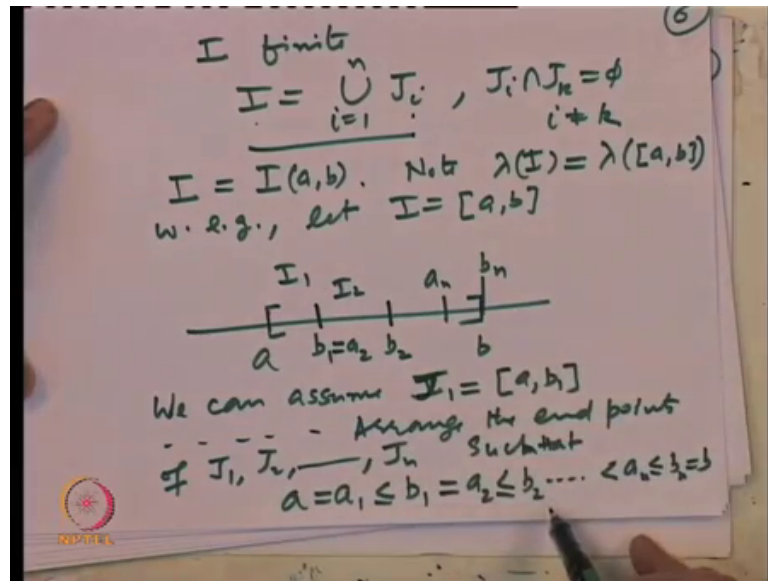 6
I finite
I = ∪ᵢ₌₁ⁿ Jᵢ , Jᵢ ∩ Jₖ = ϕ
i ≠ k
I = I(a,b). Note λ(I) = λ([a,b])
w.l.g., let I = [a,b]
I₁ I₂ aₙ bₙ
a b₁=a₂ b₂ b
We can assume I₁ = [a,b₁]
- - - - - Arrange the end points
of J₁, J₂, —, Jₙ such that
a = a₁ ≤ b₁ = a₂ ≤ b₂ .... < aₙ ≤ bₙ = b
NPTEL